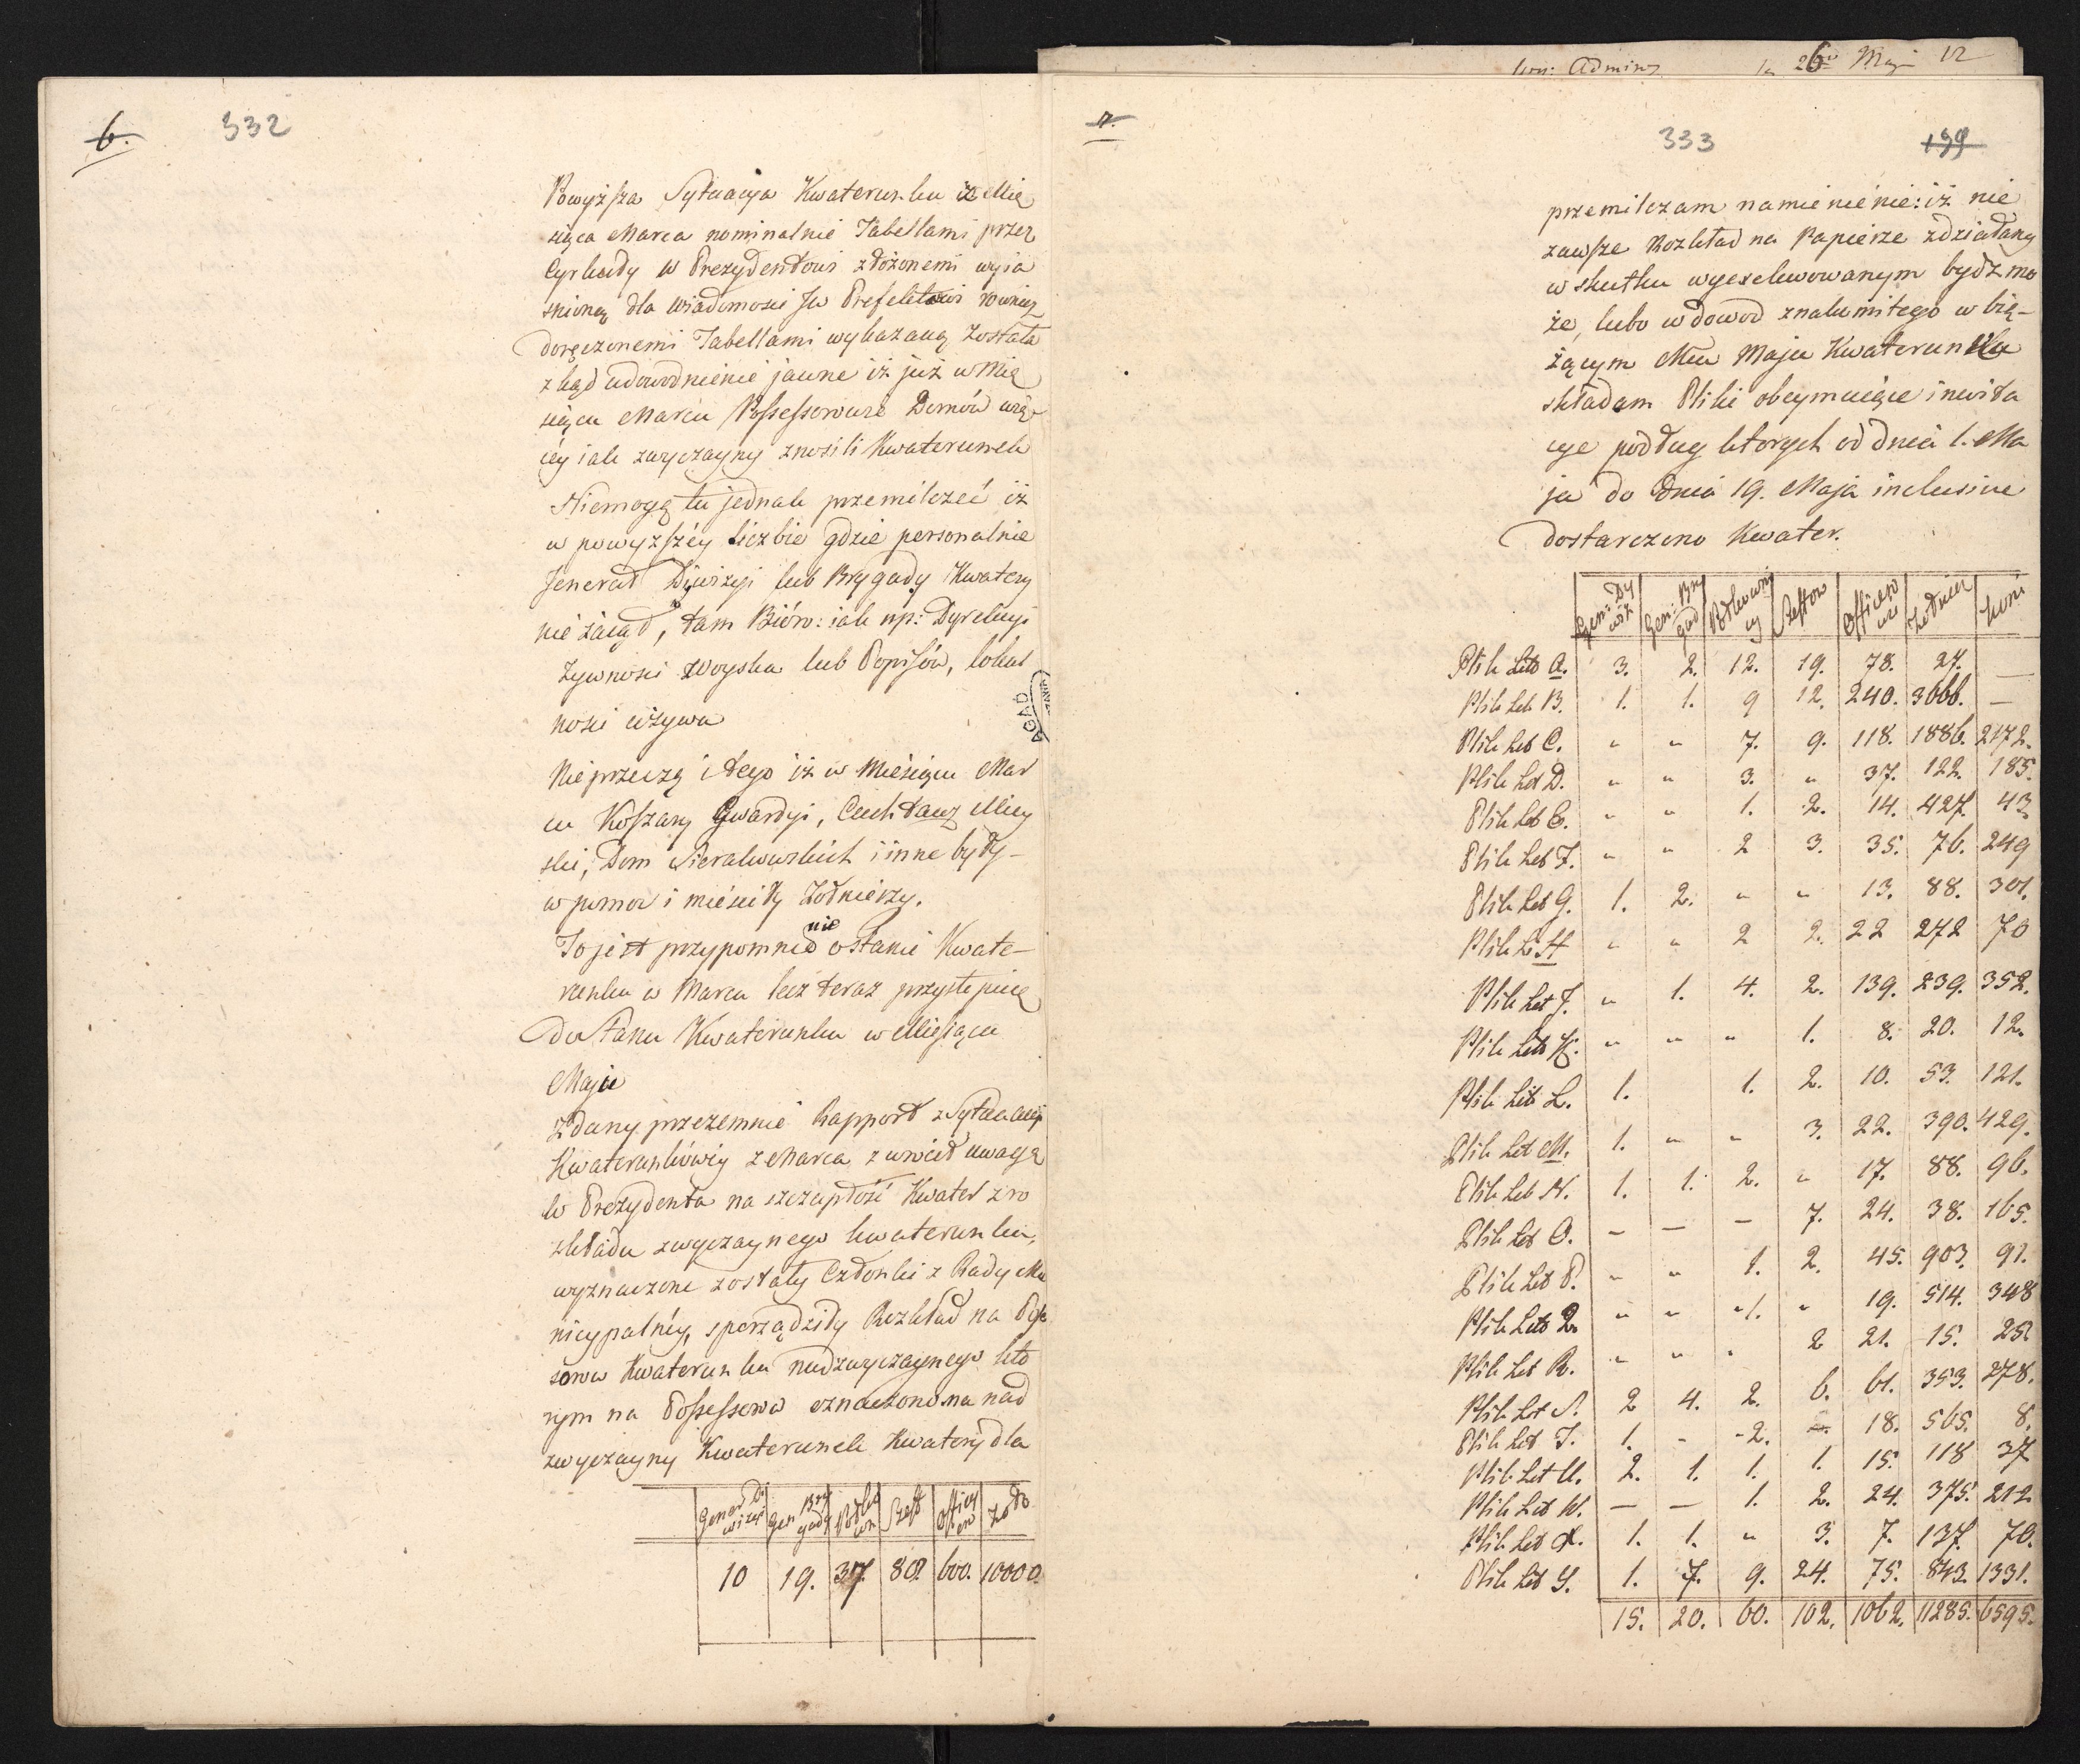 6.
332
Powyższa Sytuacya Kwaterunku z Mie
siąca Marca nominalnie Tabellami przez
Cyrkuły W Prezydentowi złożonemi wyia
śnioną dla wiadomości Jw Prefektowi rowniez
doręczonemi Tabellami wykazaną została
zkąd udowodnienie jawne iż już w Mie
siącu Marcu Possessorowie Domów wię
cey iak zwyczayny znosili Kwaterunek
Niemogę tu jednak przemilczeć iż
w powyższey liczbie gdzie personalnie
Jenerał Dywizyi lub Brygady Kwatery
nie zaiął, tam Bióro: iak np: Dyrekcyi
Żywności Woyska lub Popisów, lokal
ności używa
Nieprzeczę i tego iż w Miesiącu Mar
cu Koszary Gwardyi, Cuchtauz Miey
ski, Dom Sierakowskich i inne były
w pomoc i mieściły Żołnierzy.
To jest przypomnienie o stanie Kwate-
runku w Marcu lecz teraz przystępuię
do stanu Kwaterunku w Miesiącu
Maju
Zdany przezemnie Rapport z Sytuacyi
Kwaterunkowéy z Marca zwrócił uwagę
W Prezydenta na szczupłość Kwater z ro
zkładu zwyczaynego kwaterunku,
wyznaczone zostały Członki z Rady Mu
nicypalnéy, sporządziły Rozkład na Posse
sorow Kwaterunku nadzwyczaynego któ
rym na Possessorow oznaczono na nad
zwyczayny Kwaterunek Kwatery dla
Gener Dy wizyi Gen Bry gady Półko wn Szeff Officy erow Żołn
10 19. 37. 80. 600. 10000.
AGAD
Admin 26 Maj 12
7.
333
199
przemilczam namienienie: iż nie
zawsze Rozkład na Papierze zdziałany
w skutku wyexekwowanym bydź mo
że, lubo w dowod znakomitego w bię-
żącym Mcu Maju Kwaterunku
składam Pliki obeymuiące inwita
cye podług ktorych od dnia 1. Ma
ja do dnia 19. Maja inclusive
dostarczono Kwater.
Gen: Dy wiz Gen: Bry gad Półkowni cy Szeffow Officero wie Żołnierz Koni
Plik Lit: A. 3. 2. 12. 19. 78. 27. —
Plik Lit B. 1. 1. 9 12. 240. 3666. —
Plik Lit C. " " 7. 9. 118. 1886. 2172.
Plik Lit D. " " 3. " 37. 122. 185.
Plik Lit E. " " 1. 2. 14. 427. 43
Plik Lit F. " " 2 3. 35. 76. 249
Plik Lit G. 1. 2. " " 13. 88. 301.
Plik Li H " " 2 2. 22 272 70
Plik Lit J. " 1. 4. 2. 139. 239. 352.
Plik Lit K. " " " 1. 8. 20. 12.
Plik Lit L. 1. 1. 2. 10. 53. 121.
Plik Lit M. 1. " " 3. 22. 390. 429.
Plik Lit N. 1. 1. 2. " 17. 88. 96.
Plik Lit O. — — — 7. 24. 38. 165.
Plik Lit P. " " 1. 2. 45. 903. 91.
Plik Lit Q. " " "1. " 19. 514. 348
Plik Lit R. " " " 2 21. 15. 25.
Plik Lit S. 2 4. 2. 6. 61. 353. 278.
Plik Lit T. 1. - -2. 18. 565. 8.
Plik Lit U. 2. 1. 1. 1. 15. 118 37
Plik Lit W. — — 1. 2. 24. 375. 212
Plik Lit X. 1. 1. " 3. 7. 137. 70.
Plik Lit Y. 1. 7. 9. 24. 75. 843. 1331.
15. 20. 60. 102. 1062. 11285. 6595.